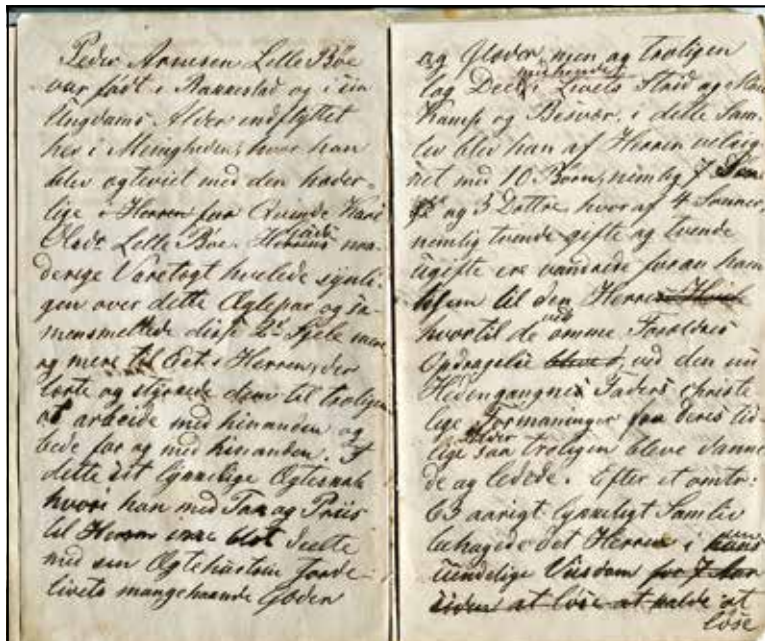 Peder Arnesen Lelle Bøe
var født i Rakkestad og i sin
Ungdoms Alder indflyttet
her i Menigheden, hvor han
blev ægteviet med den hæder-
lige i Herren Qvinde Kari
Olsdr Lelle Bøe. Herrens naa-
derige Varetægt hvilede synli-
gen over dette Ægtepar og sa-
mensmeltede disse 2de Sjele mere
og mere til Eet i Herren, der
lærte og styrede dem til troligen
at arbeide med hinanden og
bede for og med hinanden. I
dette sit lykkelige Ægteskab
hvori han med Tak og Priis
til Herren ikke blot deelte
med sin Ægtehustru Jorde-
livets mangehaande Goder
og Glæder, men og troligen
tog Deel i Livets Strid og
Kamp og Besvær, i dette Sam-
liv blev han af Herren velsig-
net med 10 Børn, nemlig 7
og 3 Døttre, hvoraf 4 Sønner,
nemlig tvende gifte og tvende
ugifte ere vandrede foran ham
hjem til den Herre
hvortil de ved ømme Forældres
Opdragelse bleve ved den nu
Hedengangnes Faders christe
lige Formaninger fra deres tid-
lige Alder saa troligen bleve danne
de og ledede. Efter et omtr:
63 aarigt lykkeligt Samliv
behagede det Herren i sin
uendelige Viisdom for 7 Aar
siden at løse at kalde at
løse